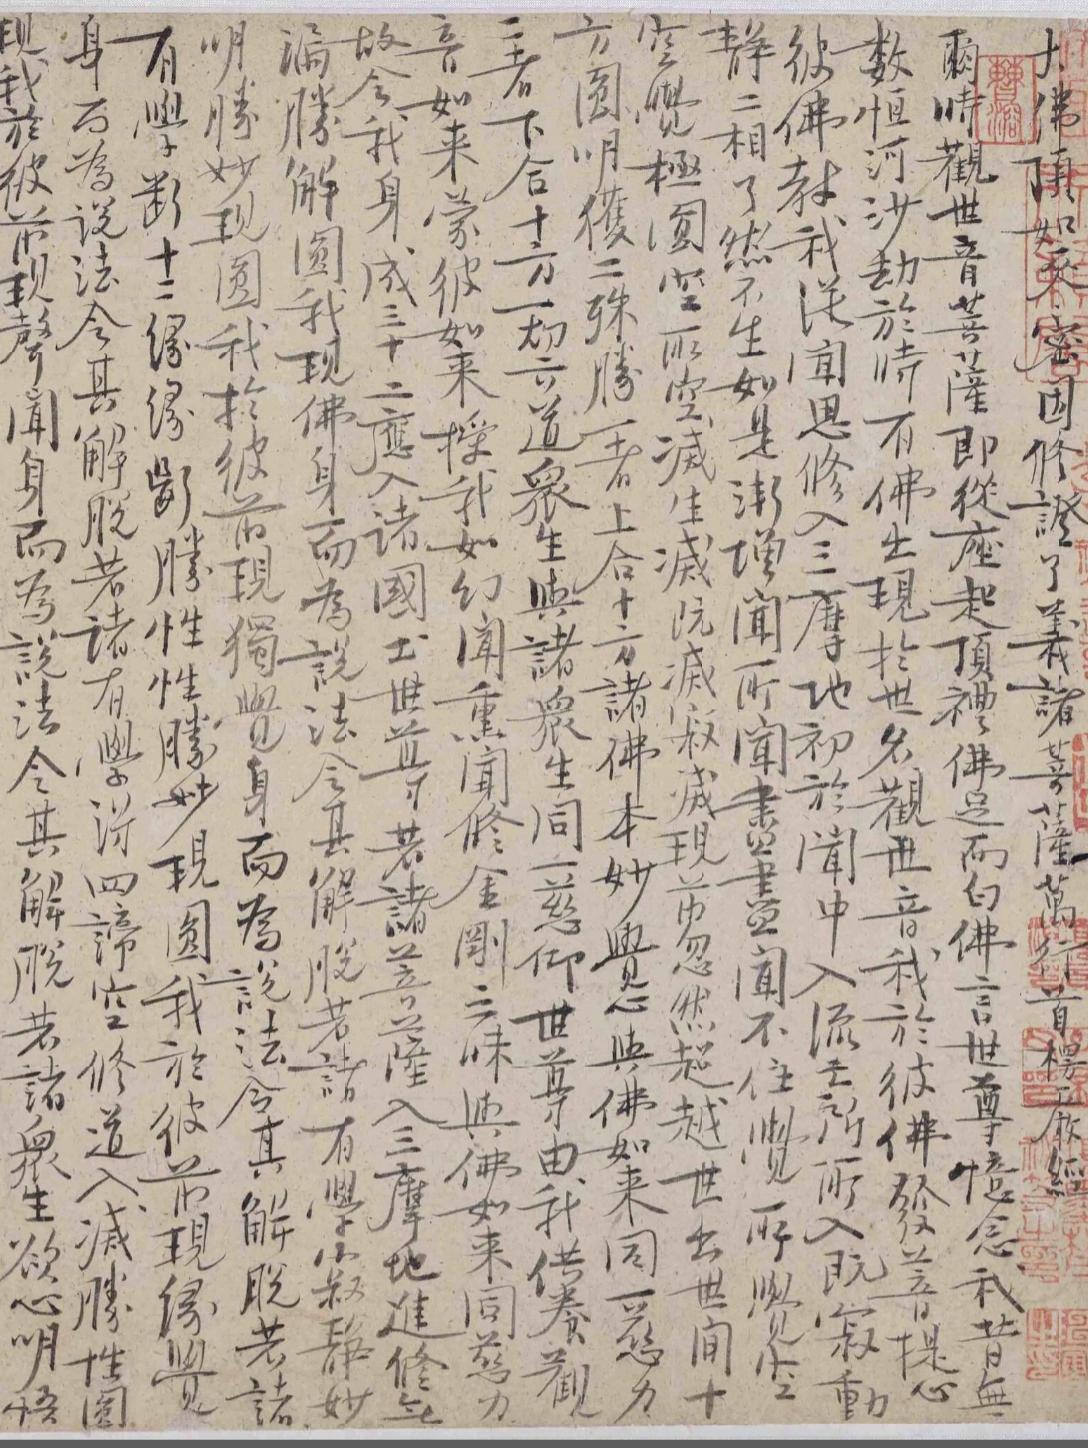 大佛頂如來密因修證了義諸菩薩萬行首楞嚴經
爾時觀世音菩薩即從座起頂禮佛足而白佛言世尊憶念我昔無
數恒河沙劫於時有佛出現於世名觀世音我於彼佛發菩提心
彼佛教我從聞思修入三摩地初於聞中入流亡所所入既寂動
靜二相了然不生如是漸增聞所聞盡盡聞不住覺所覺空
空覺極圓空所空滅生滅既滅寂滅現前忽然超越世出世間十
方圓明獲二殊勝一者上合十方諸佛本妙覺心與佛如來同一慈力
二者下合十方一切六道眾生與諸眾生同一慈仰世尊由我供養觀
音如来蒙彼如来授我如幻聞熏聞修金剛三昧與佛如来同慈力
故令我身成三十二應入諸國土世尊若諸菩薩入三摩地進修無
漏勝解圓我現佛身而為說法令其解脫若諸有學寂靜妙
明勝妙現圓我於彼前現獨覺身而為說法令其解脫若諸
有學斷十二緣緣斷勝性性勝妙現圓我於彼前現緣覺
身而為說法令其解脫若諸有學得四諦空修道入滅勝性圓
現我於彼前現聲聞身而為說法令其解脫若諸眾生欲心明悟